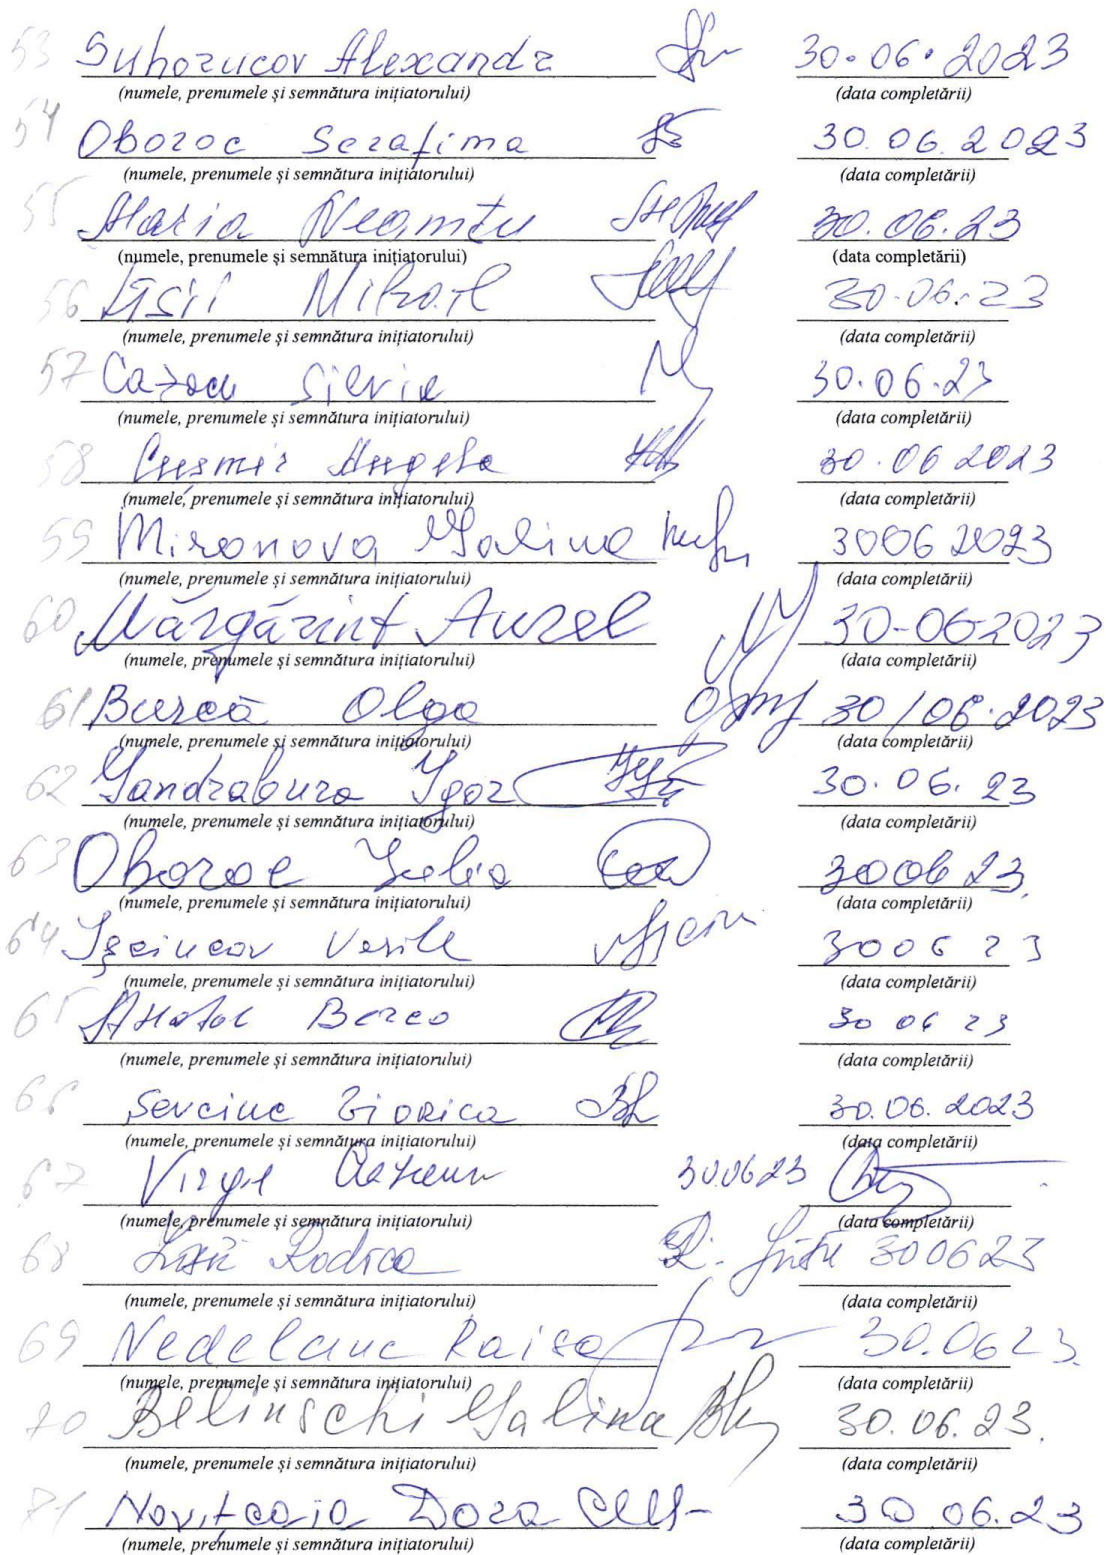 53 Suhorucov Alexandr 30.06.2023
(numele, prenumele și semnătura inițiatorului) (data completării)
54 Oboroc Serafima 30.06.2023
(numele, prenumele și semnătura inițiatorului) (data completării)
55 Maria Neamtu 30.06.23
(numele, prenumele și semnătura inițiatorului) (data completării)
56 Mihail 30.06.23
(numele, prenumele și semnătura inițiatorului) (data completării)
57 Silvia 30.06.23
(numele, prenumele și semnătura inițiatorului) (data completării)
58 Cușmir Angela 30.06 2023
(numele, prenumele și semnătura inițiatorului) (data completării)
59 Mironova Galina 3006 2023
(numele, prenumele și semnătura inițiatorului) (data completării)
60 Mărgărint Aurel 30-06-2023
(numele, prenumele și semnătura inițiatorului) (data completării)
61 Burcă Olga 30/06.2023
(numele, prenumele și semnătura inițiatorului) (data completării)
62 Gandrabura Igor 30.06.23
(numele, prenumele și semnătura inițiatorului) (data completării)
63 Oboroc Iulia 300623.
(numele, prenumele și semnătura inițiatorului) (data completării)
64 Vasile 3006 23
(numele, prenumele și semnătura inițiatorului) (data completării)
65 30 06 23
(numele, prenumele și semnătura inițiatorului) (data completării)
66 Sevciuc Viorica 30.06.2023
(numele, prenumele și semnătura inițiatorului) (data completării)
67 Virgil 300623
(numele, prenumele și semnătura inițiatorului) (data completării)
68 Rodica 300623
(numele, prenumele și semnătura inițiatorului) (data completării)
69 Nedelciuc Raisa 30.0623.
(numele, prenumele și semnătura inițiatorului) (data completării)
70 Belinschi Galina 30.06.23.
(numele, prenumele și semnătura inițiatorului) (data completării)
71 Novițcaia Dora 30 06.23
(numele, prenumele și semnătura inițiatorului) (data completării)